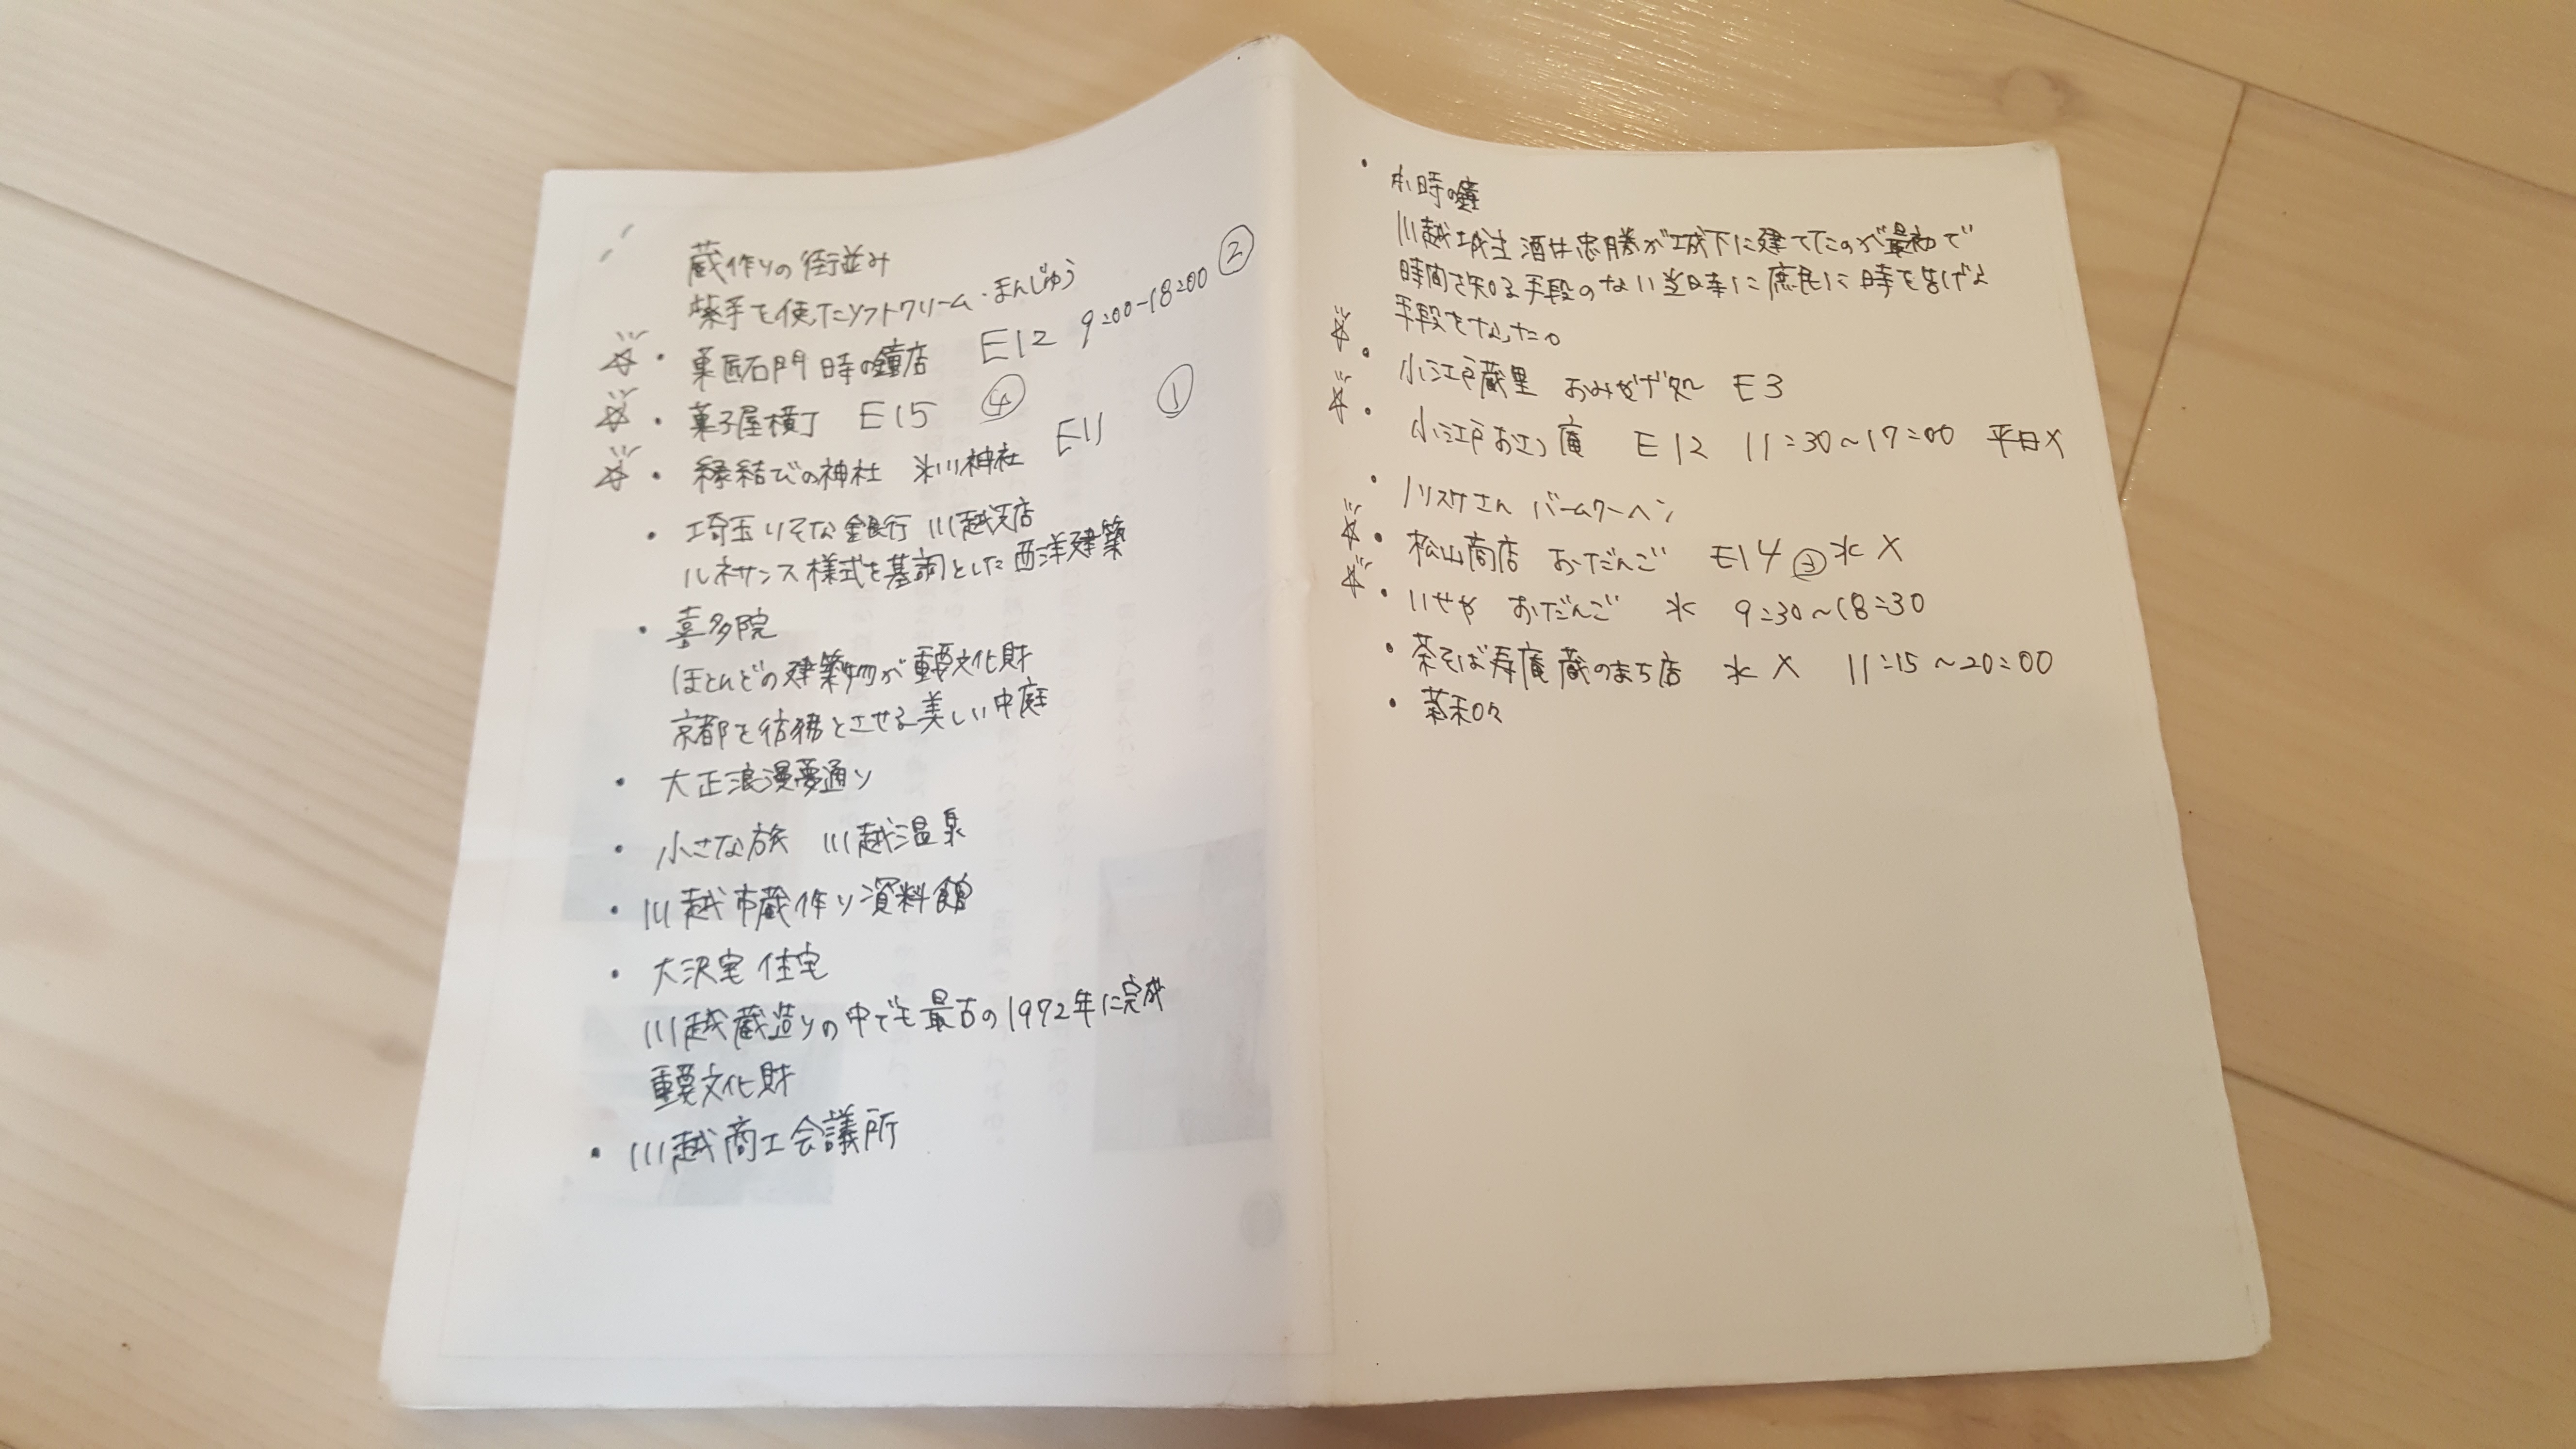 蔵作りの街並み
紫芋を使ったソフトクリーム・まんじゅう
・菓匠右門 時の鐘店 E12 9:00-18:00 ②
・菓子屋横丁 E15 ④
・縁結びの神社 氷川神社 E11 ①
・埼玉りそな銀行 川越支店
ルネサンス様式を基調とした西洋建築
・喜多院
ほとんどの建築物が重要文化財
京都を彷彿とさせる美しい中庭
・大正浪漫夢通り
・小さな旅 川越温泉
・川越市蔵作り資料館
・大沢宅住宅
川越蔵造りの中でも最古の1972年に完成
重要文化財
・川越商工会議所
・時の鐘
川越城主 酒井忠勝が城下に建てたのが最初で
時間を知る手段のない当時に庶民に時を告げる
手段となった。
・小江戸蔵里 おみやげ処 E3
・小江戸おさつ庵 E12 11:30~17:00 平日×
・ノリスケさん バームクーヘン
・松山商店 おだんご E14 ③ 水×
・いせや おだんご 水 9:30~18:30
・茶そば寿庵 蔵のまち店 水× 11:15~20:00
・茶和々